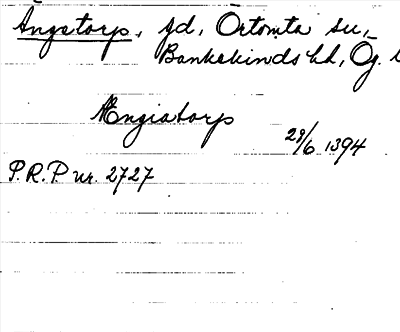 Ängstorp, gd, Örtomta sn,
Bankekinds hd, Ög. l
Ængiatorp
28/6 1394
P.R.P. nr. 2727